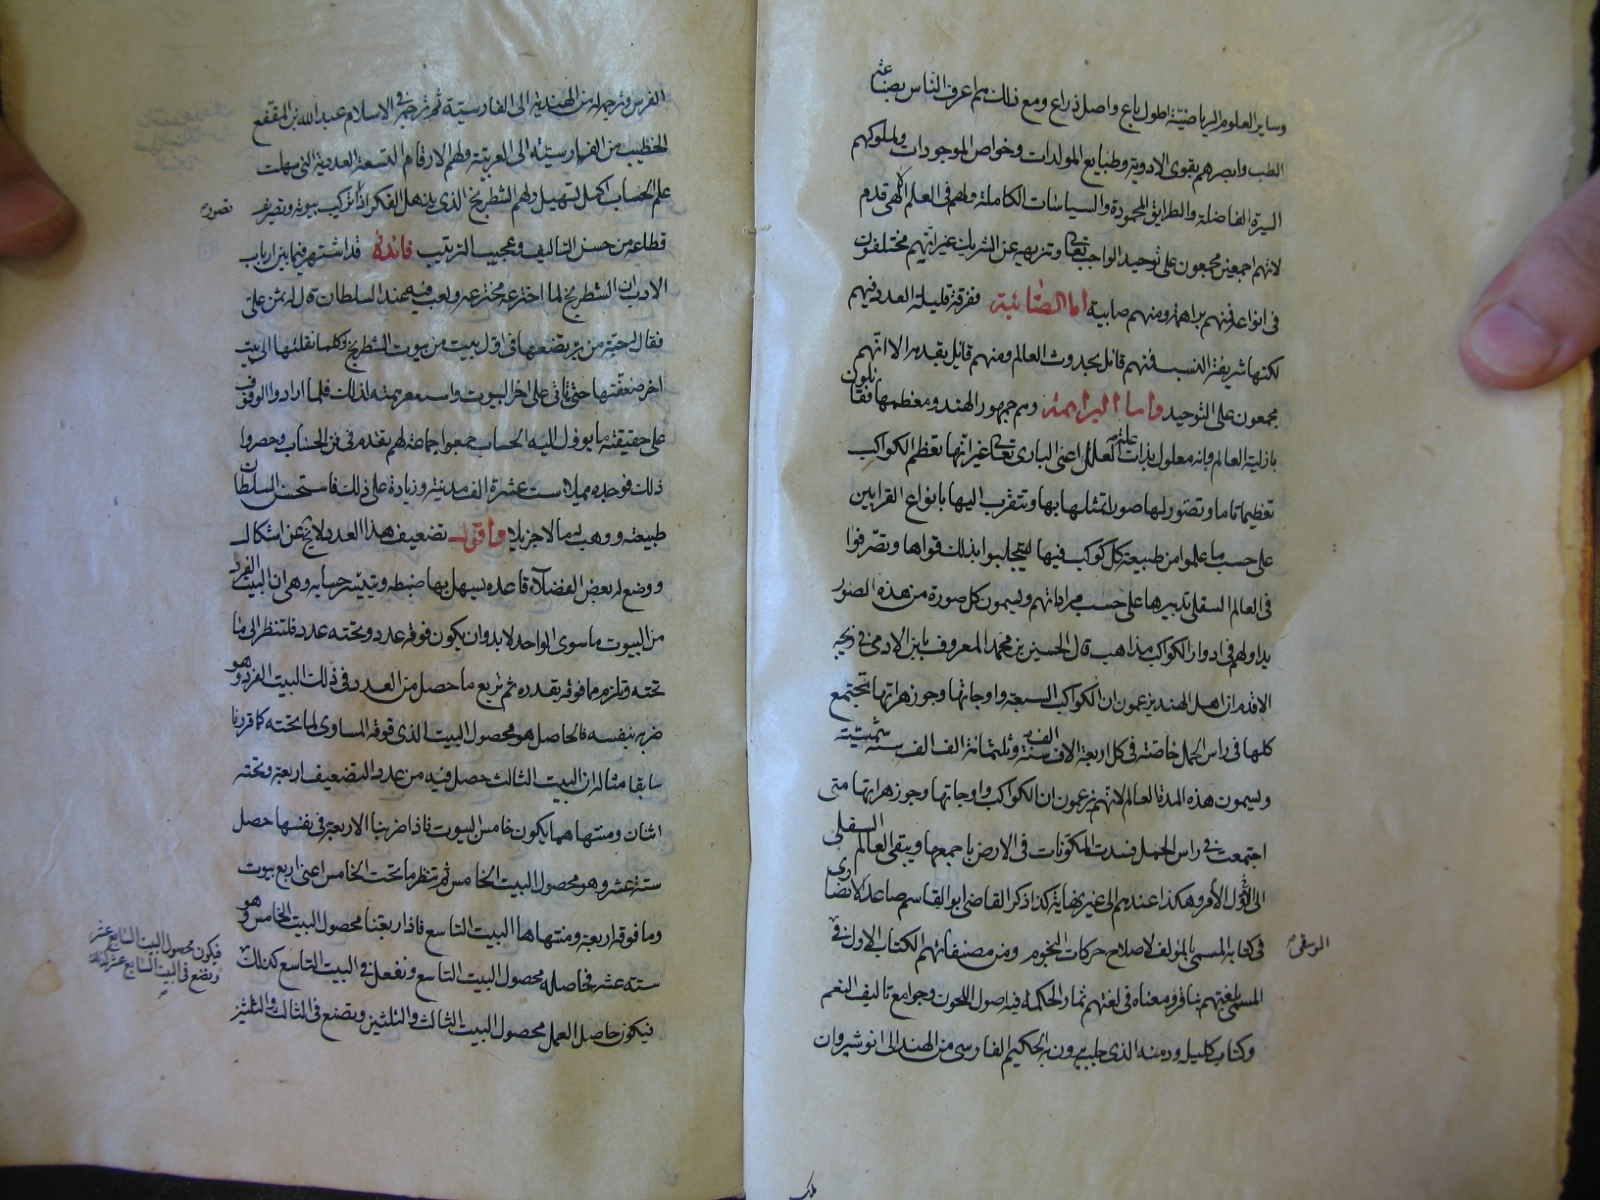 وساير العلوم الرياضية اطول باع واصل ذراع ومع ذلك هم اعرف الناس بصناعة
الطب وابصرهم بقوى الادوية وطبايع المولدات وخواص الموجودات ولملوكهم
السيرة الفاضلة والطرايق المحمودة والسياسات الكاملة ولهم في العلم الالهى قدم
لانهم اجمعين مجمعون على توحيد الواجب تعالى وتنزيهه عن الشريك غير انهم مختلفون
في انواعه فمنهم براهمة ومنهم صابية اما الصابئية ففرقة قليلة العدد فيهم
لكنها شريفة النسب فمنهم قائل بحدوث العالم ومنهم قائل بقدمه الا انهم
مجمعون على التوحيد واما البراهمة وهم جمهور الهند ومعظمها فقائلون
بازلية العالم وانه معلول بذات علة العلل اعنى البارى تعالى غير انها تعظم الكواكب
تعظيما تاما وتصور لها صورا تمثلها بها وتتقرب اليها بانواع القرابين
على حسب ما علموا من طبيعة كل كوكب فيها ليتجلبوا بذلك قواها وتصرفوا
في العالم السفلى تدبيرها على حسب مراداتهم ويسمون كل صورة من هذه الصور
بدا ولهم في ادوار الكواكب مذاهب قال الحسين بن محمد المعروف بابن الادمى في زيجه
الاقدم ان اهل الهند يزعمون ان الكواكب السبعة واوجاتها وجوزهراتها تجتمع
كلها في راس الحمل خاصة في كل اربعة الاف الف سنة وثلثمائة الف الف سنة شمسية
ويسمون هذه المدة العالم لانهم يزعمون ان الكواكب واوجاتها وجوزهراتها متى
اجتمعت في راس الحمل فسدت المكونات في الارض باجمعها ويبقى العالم السفلى
الى الاول الأمر وهكذا عندهم الى غير نهاية كذا ذكر القاضى ابو القاسم صاعد الانصارى
في كتابه المسمى بالمؤلف لاصلاح حركات النجوم ومن مصنفاتهم الكتاب الاول في
الموسقى
المسمى بلغتهم نافر ومعناه في لغتهم ثمار الحكمة فيه اصول اللحون وجوامع تاليف النغم
وكتاب كليله ودمنه الذى جلبه برزويه الحكيم الفارسى من الهند الى انوشيروان
ملك
الفرس وترجمه له من الهندية الى الفارسية ثم ترجمه في الاسلام عبد الله بن المقفع
الخطيب من الفارسية الى العربية ولهم الارقام التسعة العددية التى سهلت
علم الحساب اكمل تسهيل ولهم الشطرنج الذى يذهل الفكر اذا تركيب بيوته وتصريف
قطاعه من حسن التاليف وعجيب الترتيب فائدة قد اشتهر فيما بين ارباب
الادب ان الشطرنج لما اخترعه مخترعه ولعب فيه عند السلطان قال له تمن على
فقال حبة من بر يضعها في اول بيت من بيوت الشطرنج وكلما نقلتها الى بيت
اخر ضعفتها حتى تاتى على اخر البيوت واستصغر همته لذلك فلما ارادوا الوقوف
على حقيقته ما يوول اليه الحساب جمعوا جماعة لهم يقدم في فن الحساب وحصروا
ذلك فوجدوه مميلا ست عشرة الف مدينة وزيادة على ذلك فاستحسن السلطان
طبيعته ووهب له مالا جزيلا واقول تضعيف هذا العدد لا يخ عن اشكال
ووضع له بعض الفضلاء قاعده يسهل بها ضبطه ويتيسر حسابه وهى ان البيت الفرد
من البيوت ما سوى الواحد لا بد وان يكون فوقه عدد وتحته عدد فلتنظر الى ما
تحته وتلزم مما فوقه بقدره ثم تربع ما حصل من العدد في ذلك البيت الفرد وهو
ضربه بنفسه فالحاصل هو محصول البيت الذى فوقه المساوى لما تحته كما قررنا
سابقا مثاله ان البيت الثالث حصل فيه من عدد التضعيف اربعة وتحته
اثنان ومنتهاهما يكون خامس البيوت فاذا ضربنا الاربعة في نفسها حصل
ستة عشر وهو محصول البيت الخامس ثم تنظر ما تحت الخامس اعنى اربع بيوت
وما فوقه اربعة ومنتهاها البيت التاسع فاذا ربعنا محصول البيت الخامس وهو
ستة عشر فحاصله محصول البيت التاسع ونفعل في البيت التاسع كذلك
فيكون محصول البيت السابع عشر
ونضع في البيت السابع عشر كذلك
فيكون حاصل العمل محصول البيت الثالث والثلثين ونصنع في الثالث والثلثين